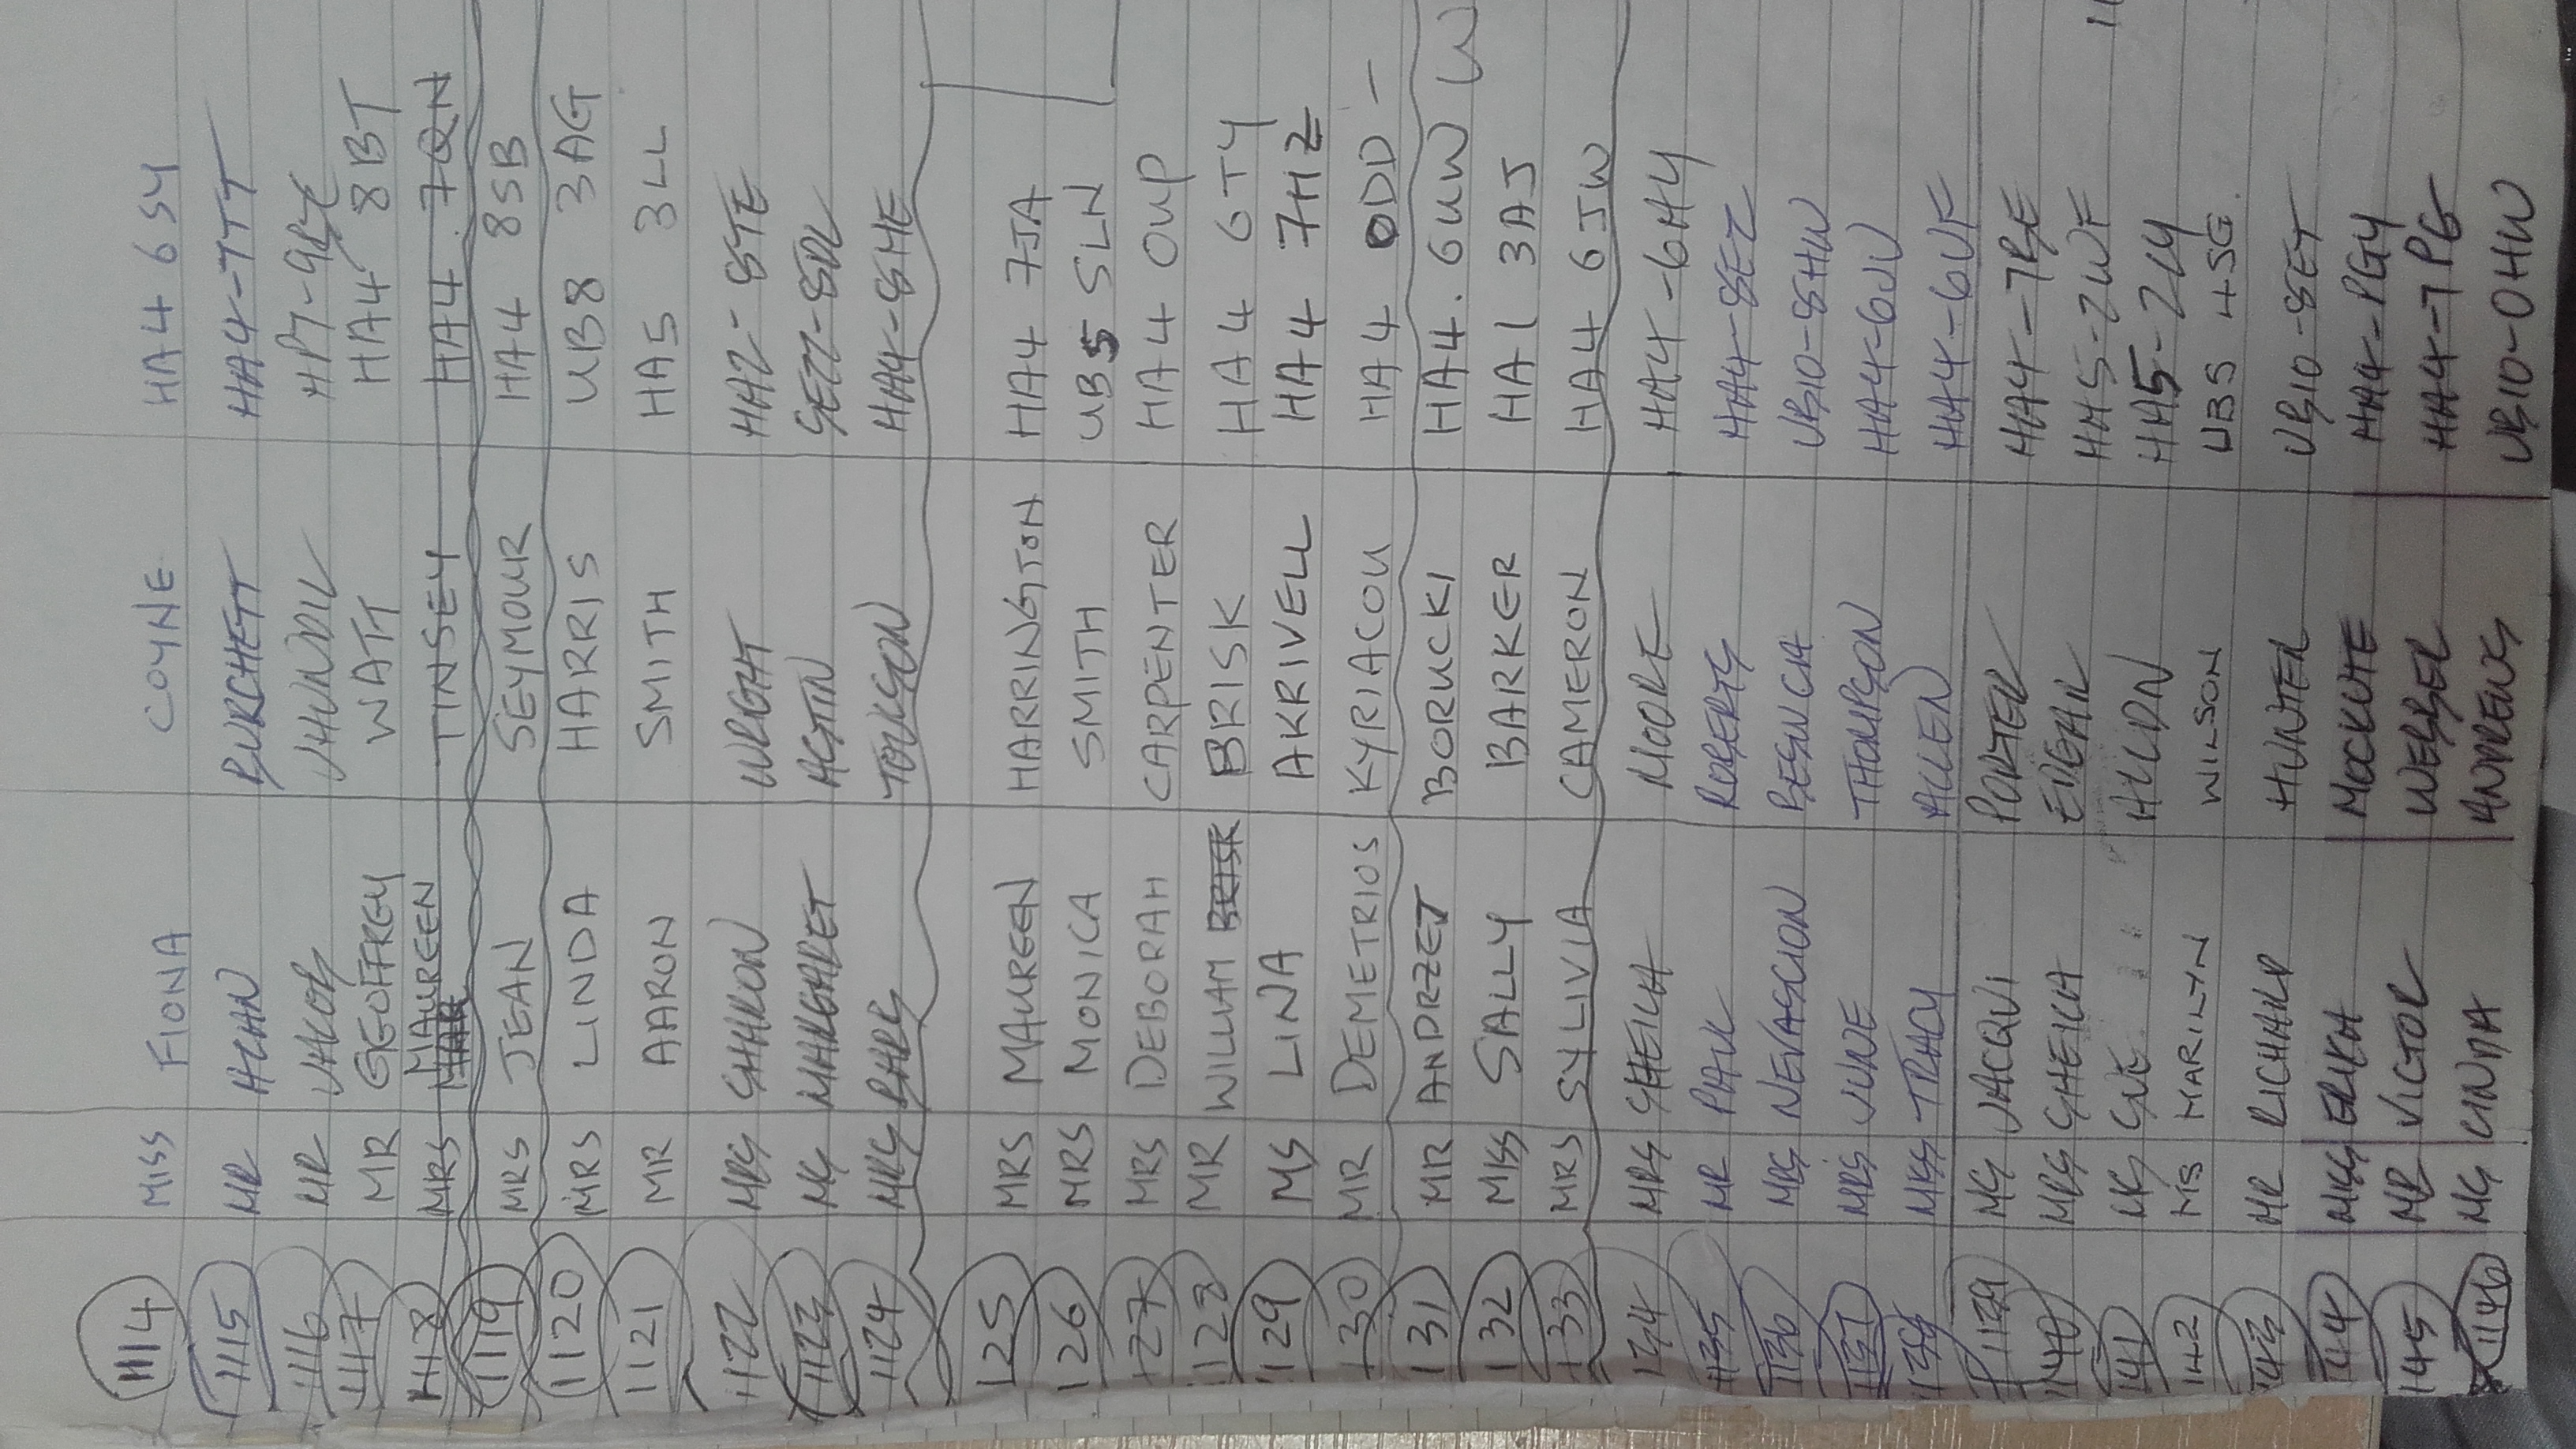 1114 MISS FIONA COYNE HA4 6SY
1115 MR ALAN BURCHETT HA4-7TT
1116 MR JAKOB HP7-9BE
1117 MR GEOFFREY WATT HA4 8BT
1118 MRS MAUREEN TINSEY HA4 7QN
1119 MRS JEAN SEYMOUR HA4 8SB
1120 MRS LINDA HARRIS UB8 3AG
1121 MR AARON SMITH HA5 3LL
1122 MRS SHARON WRGHT HA2-8TE
1123 MS MARGARET ASTIN SE22-8DL
1124 MRS BARB TOULSON HA4-8HE
125 MRS MAUREEN HARRINGTON HA4 7JA
126 MRS MONICA SMITH UB5 5LN
127 MRS DEBORAH CARPENTER HA4 0UP
1128 MR WILLIAM BRISK BRISK HA4 6TY
1129 MS LINA AKRIVELL HA4 7HZ
130 MR DEMETRIOS KYRIACOU HA4 0DD -
131 MR ANDRZEJ BORUCKI HA4. 6UW W
132 MISS SALLY BARKER HA1 3AJ
133 MRS SYLIVIA CAMERON HA4 6JW
134 MRS SHEILA MOORE HA4-6HY
1135 MR PAUL ROBERTS HA4-8EZ
1136 MRS NEVASCION UB10-8HW
1137 MRS JUNE THOMPSON HA4-6JU
1138 MISS TRACY ALLEN HA4-6UF
1139 MS JACQUI PORTER HA4-7BE
1140 MRS SHEILA EDGAR HA5-2WF
141 MS SUE HA5-2LY
142 MS MARILYN WILSON UB5 4SG.
143 MR RICHARD HUNTER UB10-8ET
144 MISS ERIKA MOCKUTE HA4-PGY
145 MR VICTOR WEBBER HA4-7PG
1146 MS LINDA ANDREWS UB10-0HW